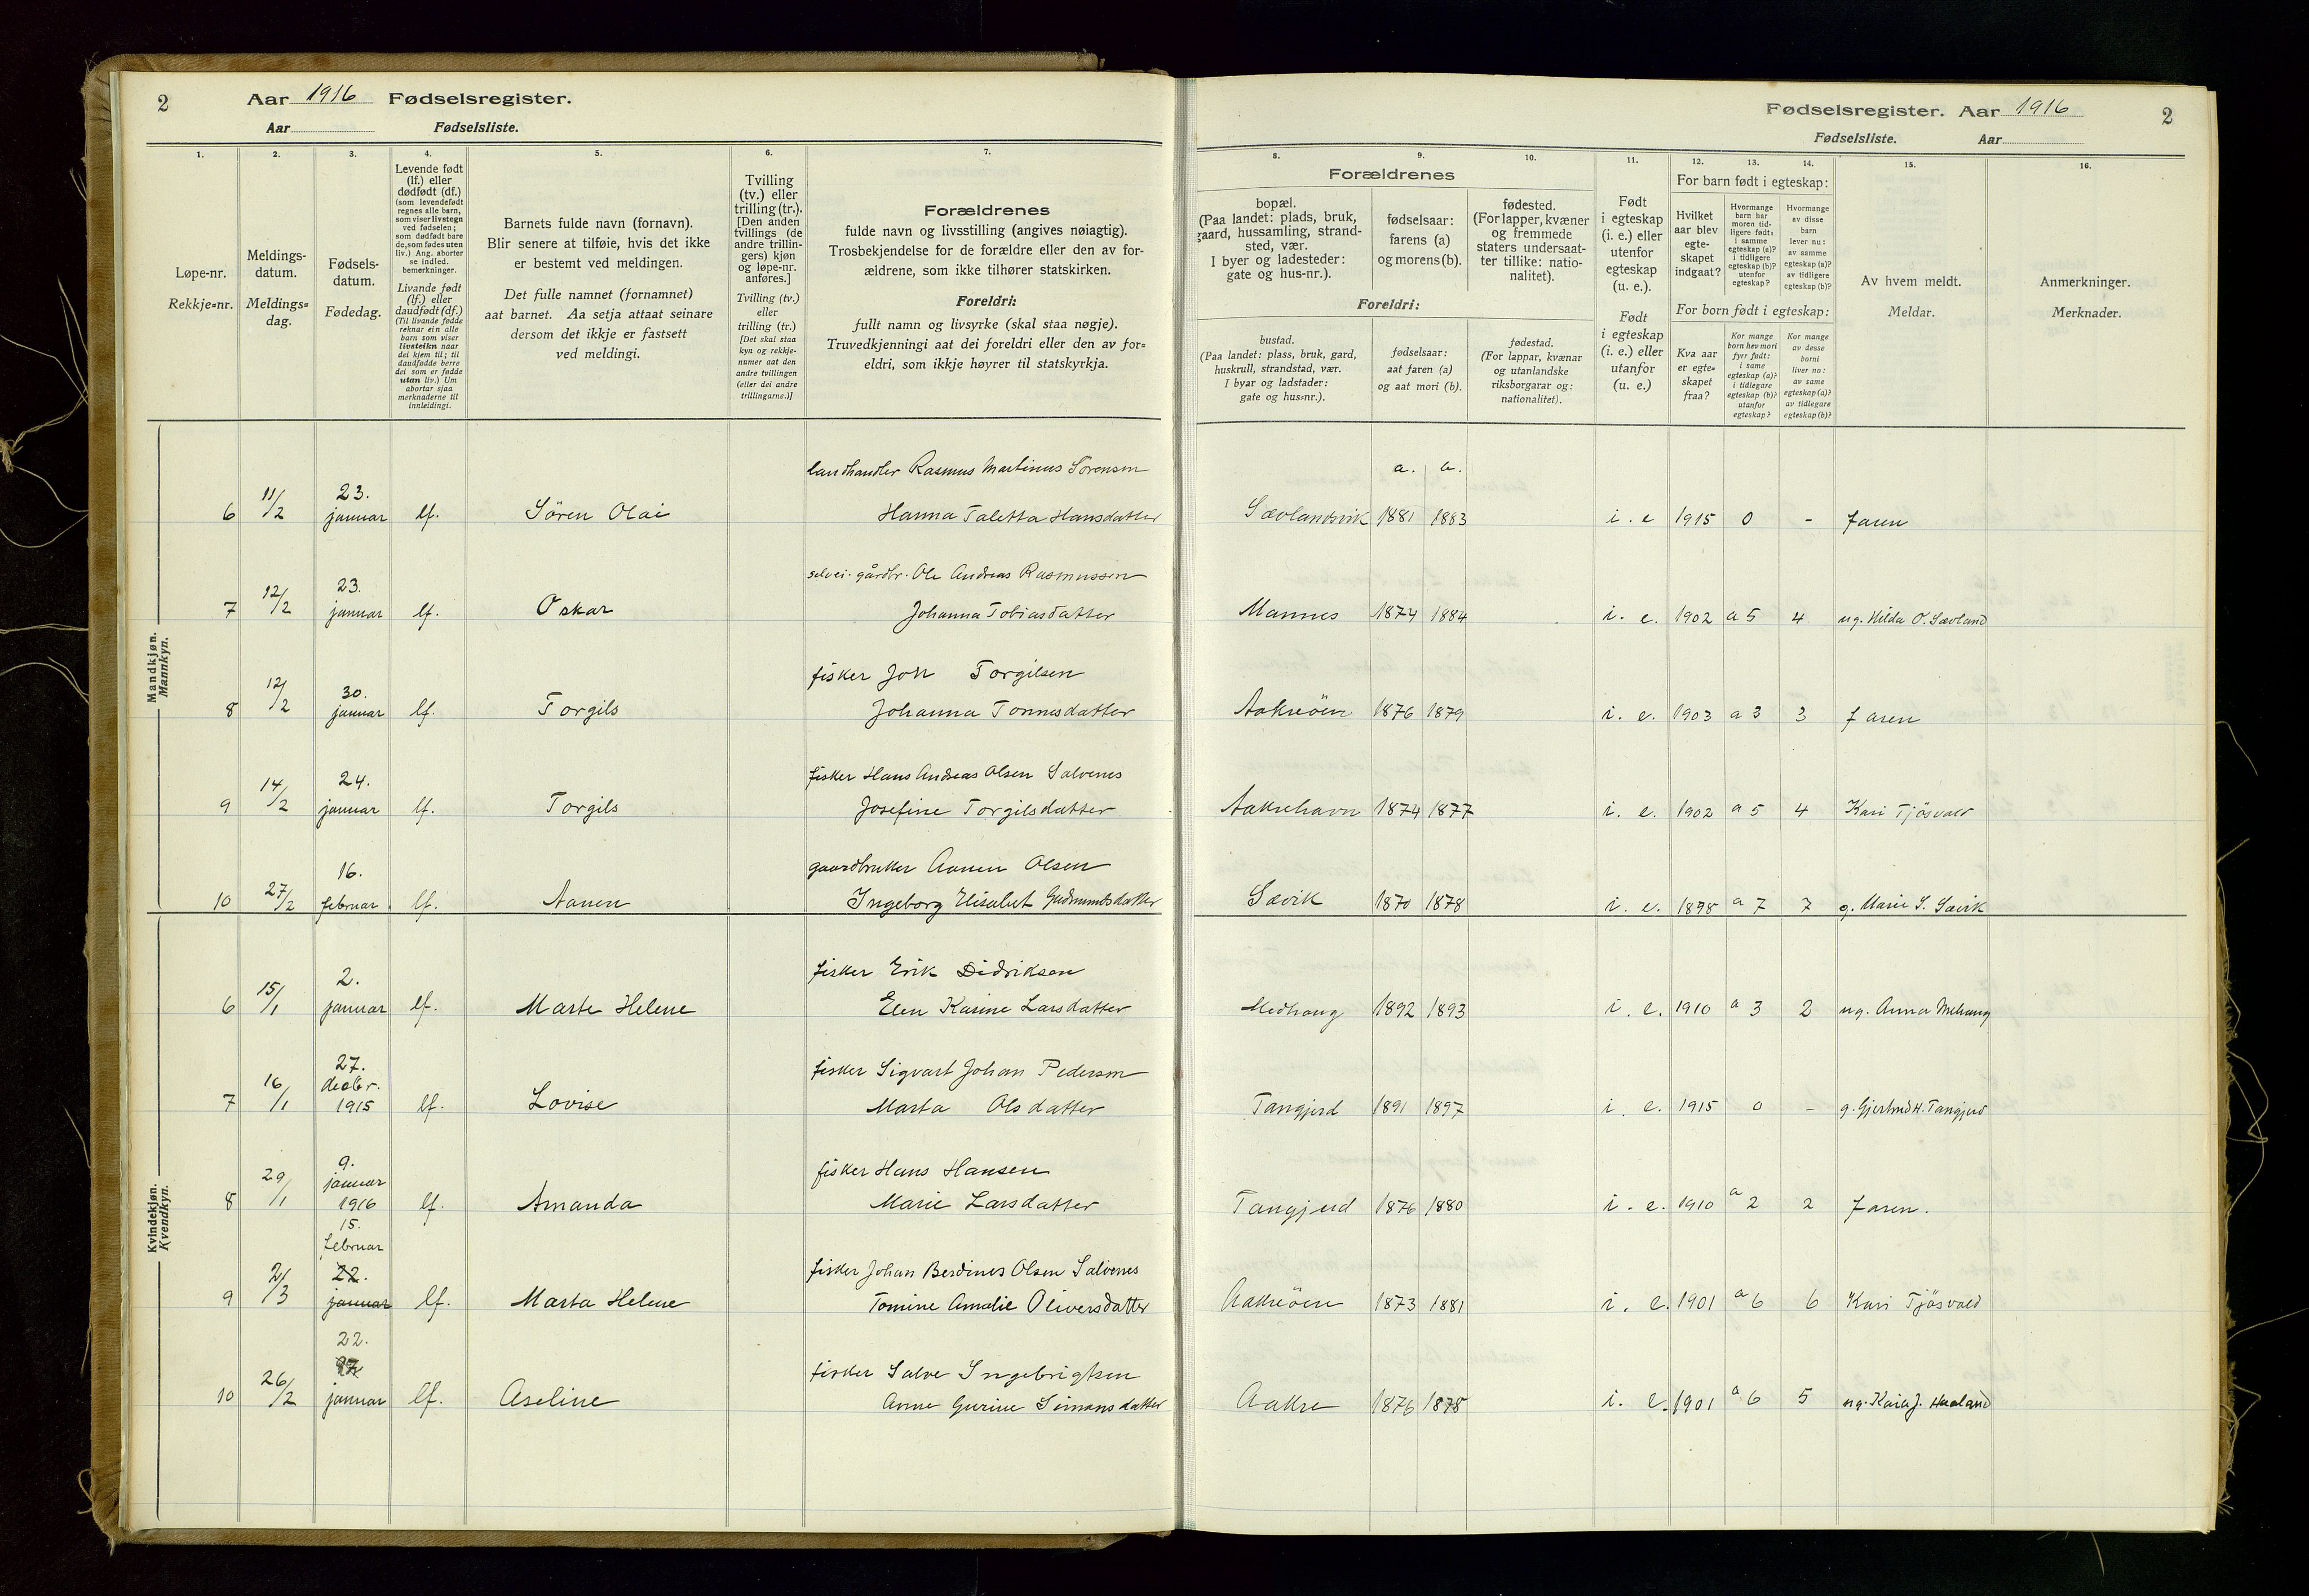 2 Aar 1916 Fødselsregister.
Aar Fødselsliste.
1.
Løpe-nr.
Rekkje=nr.
2.
Meldings-
datum.
Meldings=
dag.
3.
Fødsels-
datum.
Fødedag.
4.
Levende født
(lf.) eller
dødfødt (df.)
(som levendefødt
regnes alle barn,
som viser livstegn
ved fødselen;
som dødfødt bare
de, som fødes uten
liv.) Ang. aborter
se indled.
bemerkninger.
Livande født
(lf.) eller
daudfødt (df.)
(Til livande fødde
reknar ein alle
barn som viser
livsteikn naar
dei kjem til; til
daudfødde berre
dei som er fødde
utan liv.) Um
abortar sjaa
merknaderne til
innleidingi.
5.
Barnets fulde navn (fornavn).
Blir senere at tilføie, hvis det ikke
er bestemt ved meldingen.
Det fulle namnet (fornamnet)
aat barnet. Aa setja attaat seinare
dersom det ikkje er fastsett
ved meldingi.
6.
Tvilling
(tv.) eller
trilling (tr.).
[Den anden
tvillings (de
andre trillin-
gers) kjøn
og løpe-nr.
anføres.]
Tvilling (tv.)
eller
trilling (tr.)
[Det skal staa
kyn og rekkje-
numer aat den
andre tvillingen
(eller dei andre
trillingarne.)]
7.
Forældrenes
fulde navn og livsstilling (angives nøiagtig).
Trosbekjendelse for de forældre eller den av for-
ældrene, som ikke tilhører statskirken.
Foreldri:
fullt namn og livsyrke (skal staa nøgje).
Truvedkjenningi aat dei foreldri eller den av for=
eldri, som ikkje høyrer til statskyrkja.
Mandkjøn.
Mannkyn.
landhandler Rasmus Martinus Sörensen
6 11/2 23. januar lf. Sören Olai Hanna Taletta Hansdatter
selvei. gårdbr. Ole Andreas Rasmussen
7 12/2 23. januar lf. Oskar Johanna Tobiasdatter
fisker Jon Torgilsen
8 12/2 30. januar lf. Torgils Johanna Tonnesdatter
fisker Hans Andreas Olsen Salvenes
9 14/2 24. januar lf. Torgils Josefine Torgilsdatter
gaardbruker Aanen Olsen
10 27/2 16. februar lf. Aanen Ingeborg Elisabet Gudmundsdatter
Kvindekjøn.
Kvendkyn.
fisker Erik Didriksen
6 15/1 2. januar lf. Marte Helene Elen Karine Larsdatter
fisker Sigvart Johan Pedersen
7 16/1 27. decbr. 1915 lf. Lovise Marta Olsdatter
fisker Hans Hansen
8 29/1 9. januar 1916 lf. Amanda Marie Larsdatter
15. februar
fisker Johan Berdines Olsen Salvenes
9 2/3 22. januar lf. Marta Helene Tomine Amalie Oliversdatter
22.
fisker Salve Ingebrigtsen
10 26/2 27 januar lf. Aseline Anne Gurine Simonsdatter
Fødselsregister. Aar 1916 2
Fødselsliste. Aar
Forældrenes
8.
bopæl.
(Paa landet: plads, bruk,
gaard, hussamling, strand-
sted, vær.
I byer og ladesteder:
gate og hus-nr.).
9.
fødselsaar:
farens (a)
og morens (b).
10.
fødested.
(For lapper, kvæner
og fremmede
staters undersaat-
ter tillike: natio-
nalitet).
Foreldri:
bustad.
(Paa landet: plass, bruk, gard,
huskrull, strandstad, vær.
I byar og ladstader:
gate og hus=nr.).
fødselsaar:
aat faren (a)
og aat mori (b).
fødestad.
(For lappar, kvænar
og utanlandske
riksborgarar og:
nationalitet).
11.
Født
i egteskap
(i. e.) eller
utenfor
egteskap
(u. e.).
Født
i egteskap
(i. e.) eller
utanfor
(u. e.)
12. 13. 14.
For barn født i egteskap:
Hvilket
aar blev
egte-
skapet
indgaat?
Hvormange
barn har
moren tid-
ligere født:
i samme
egteskap (a)?
i tidligere
egteskap (b)?
utenfor
egteskap?
Hvormange
av disse
barn
lever nu:
av samme
egteskap (a)?
av tidligere
egteskap (b)?
For born født i egteskap:
Kva aar
er egte=
skapet
fraa?
Kor mange
born hev mori
fyrr født:
i same
egteskap (a)?
i tidlegare
egteskap (b)?
utanfor
egteskap?
Kor mange
av desse
borni
liver no:
av same
egteskap (a)?
av tidlegare
egteskap (b)?
15.
Av hvem meldt.
Meldar.
16.
Anmerkninger.
Merknader.
a. b.
Sævlandsvik 1881 1883 i. e 1915 0 - faren
Mannes 1874 1884 i. e. 1902 a 5 4 ug. Hilda O. Sævland
Aakreöen 1876 1879 i. e. 1903 a 3 3 faren
Aakrehavn 1874 1877 i. e. 1902 a 5 4 Kari Tjösvald
Sævik 1870 1878 i. e. 1898 a 7 7 g. Marie S. Sævik
Medhaug 1892 1893 i. e. 1910 a 3 2 ug. Anna Mehaug
Tangjerd 1891 1897 i. e. 1915 0 - g. Gjertrud H. Tangjerd
Tangjerd 1876 1880 i. e. 1910 a 2 2 faren.
Aakreöen 1873 1881 i. e. 1901 a 6 6 Kari Tjösvald
Aakre 1876 1878 i. e. 1901 a 6 5 ug. Kaia J. Haaland